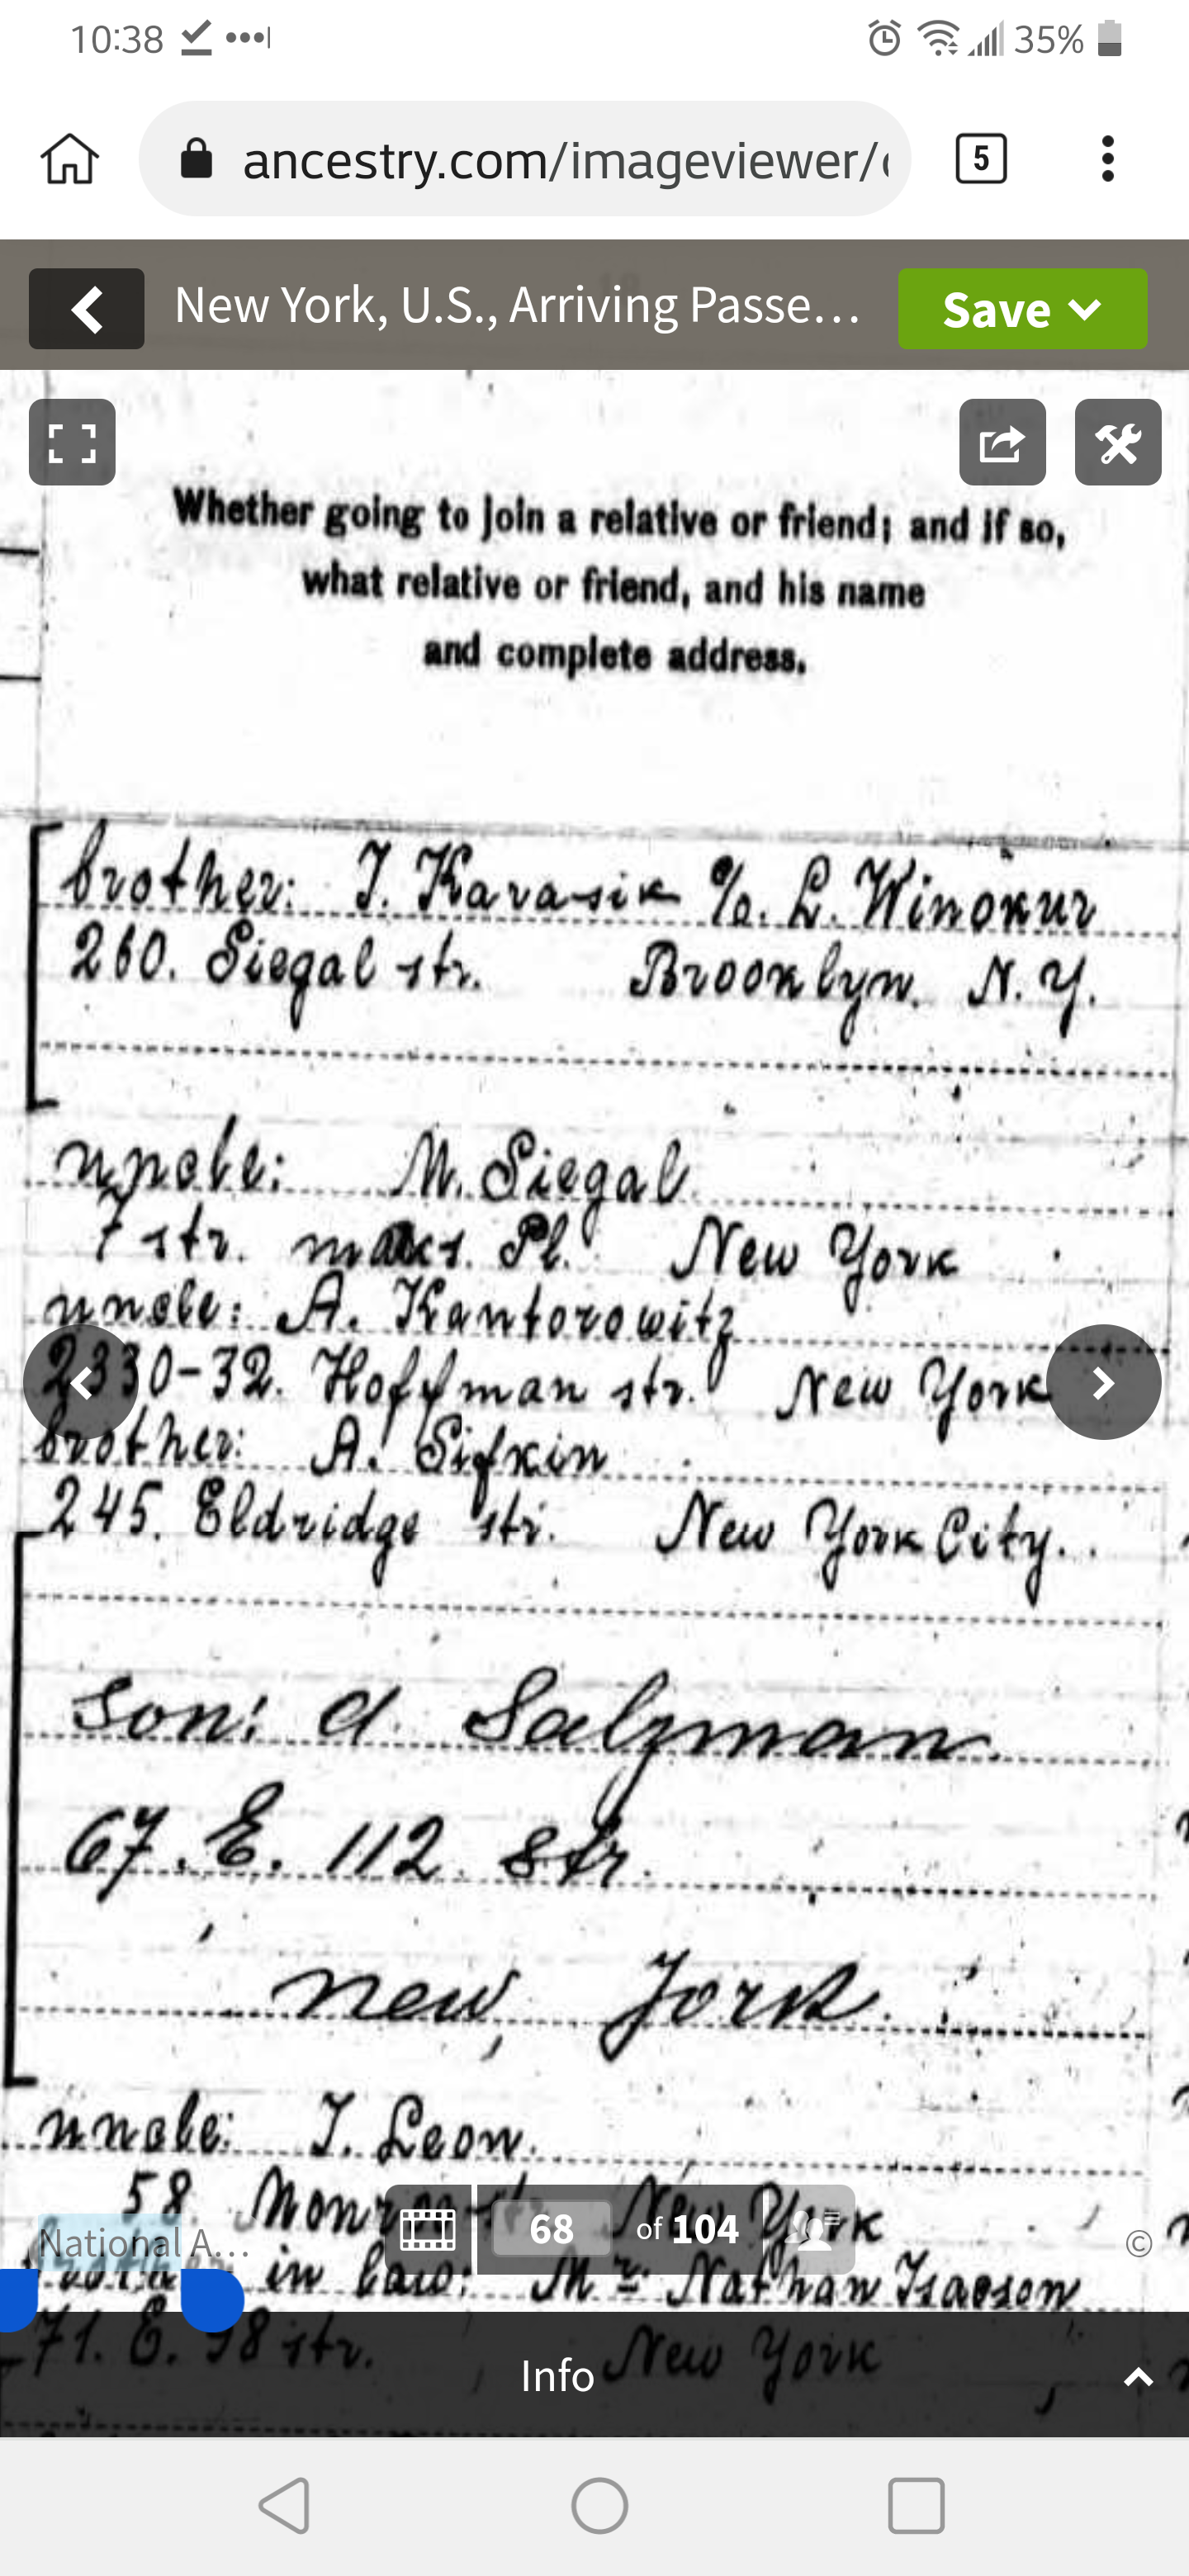 10:38
35%
ancestry.com/imageviewer/
5
New York, U.S., Arriving Passe...
Save
Whether going to join a relative or friend; and if so,
what relative or friend, and his name
and complete address.
brother: J. Karasik c/o. L. Winokur
260. Siegal str. Brooklyn. N.Y.
uncle: M. Siegal
7 str. Pl. New York
uncle: A. Kantorowitz
2330-32. Hoffman str. New York
brother: A. Sifkin
245. Eldridge str. New York City.
son: A. Salzman
67. E. 112. str.
new York.
uncle: J. Leon.
58. New York
68 of 104
National A...
©
in law: Mr. Nathan Isaeson
71. E. 98 str. New York
Info